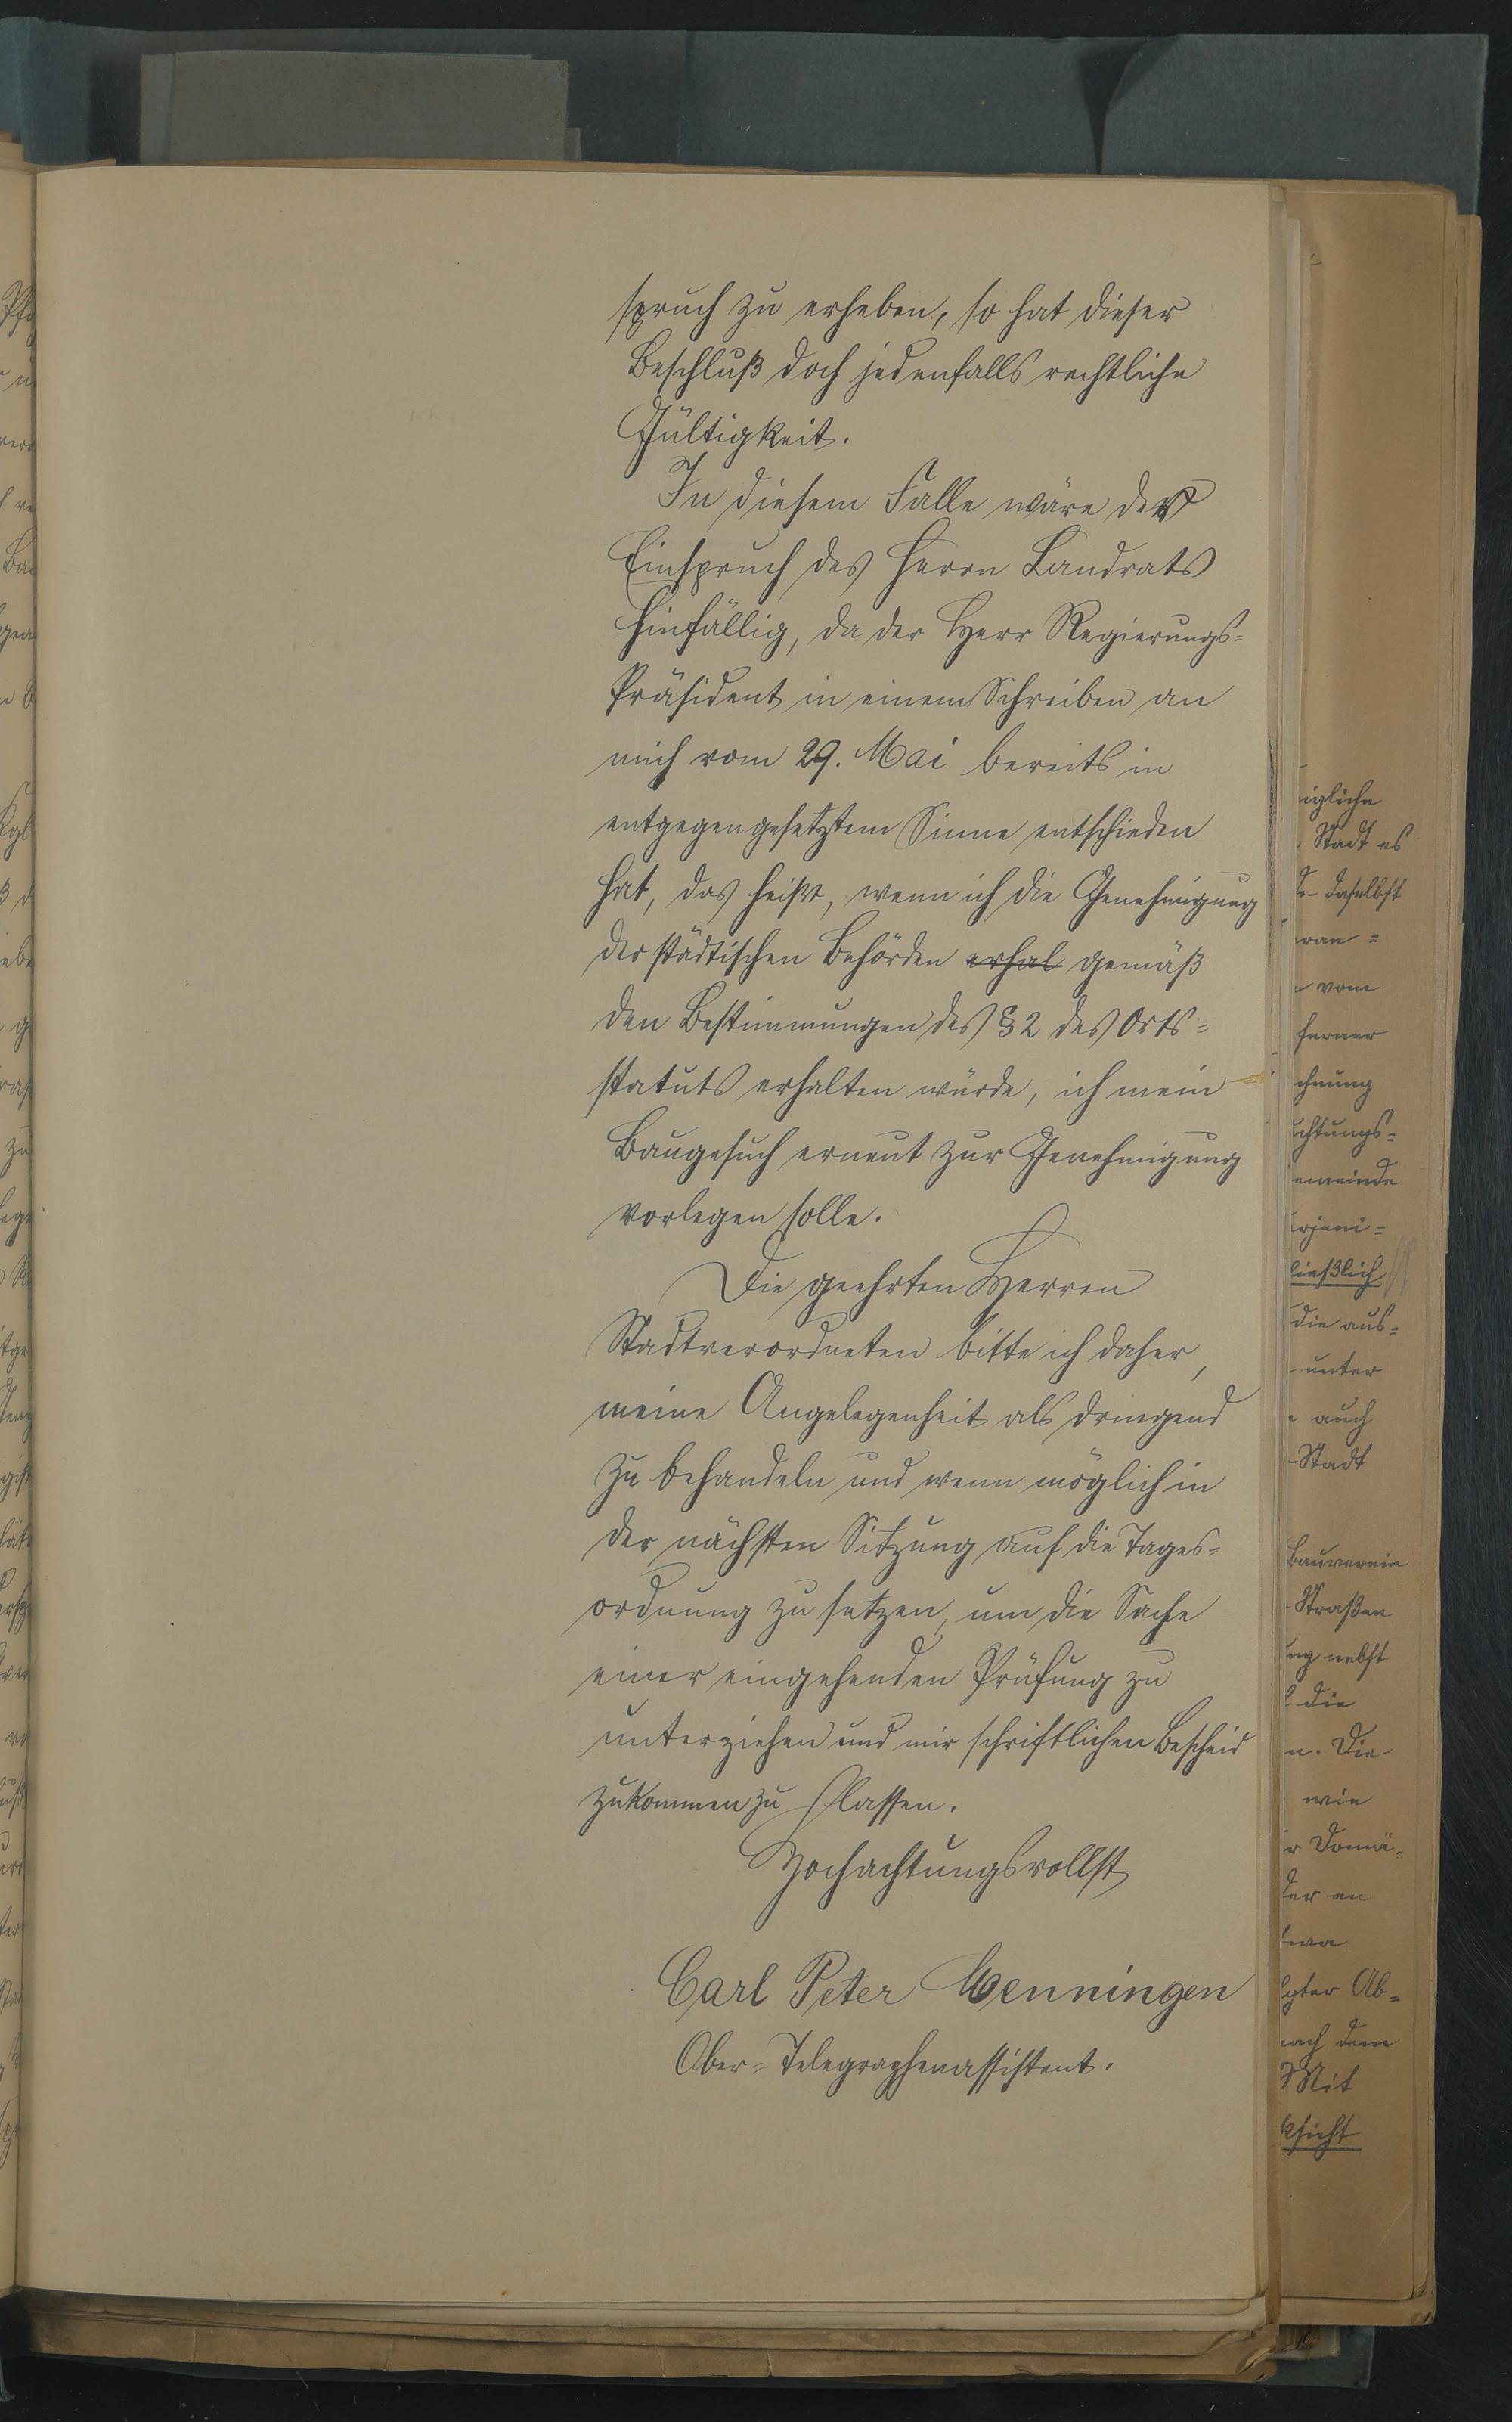 spruch zu erheben, so hat dieser
Beschluß doch jedenfalls rechtliche
Gültigkeit.
In diesem Falle wäre der
Einspruch des Herrn Landrats
hinfällig, da der Herr Regierungs=
Präsident in einem Schreiben an
mich vom 29. Mai bereits in
entgegengesetztem Sinne entschieden
hat, das heißt, wenn ich die Genehmigung
der städtischen Behörden erhal gemäß
den Bestimmungen des § 2 des Orts=
statuts erhalten würde, ich mein
Baugesuch erneut zur Genehmigung
vorlegen solle.
Die geehrten Herren
Stadtverordneten bitte ich daher,
meine Angelegenheit als dringend
zu behandeln und wenn möglich in
der nächsten Sitzung auf die Tages=
ordnung zu setzen, um die Sache
einer eingehenden Prüfung zu
unterziehen und mir schriftlichen Bescheid
zukommen zu lassen.
Hochachtungsvollst
Carl Peter Henningen
Ober=Telegraphenassistent.
igliche
Stadt es
daselbst
vom
ferner
chnung
chtungs=
emeinde
ließlich
die aus=
unter
auch
Stadt
Bauverein
Straßen
ng nebst
die
n. Die
wie
r Domä=
der an
twa
gter Ab=
nach dem
Mit
ksicht